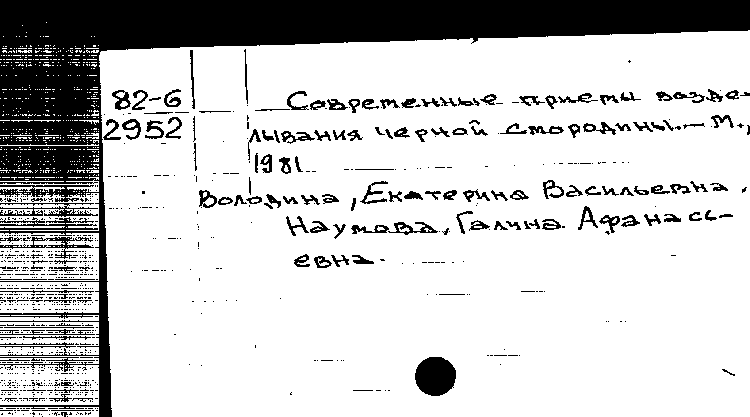 82-6 Современные приемы возде-
2952 лывания черной смородины.- М.,
1981
Володина, Екатерина Васильевна.
Наумова, Галина Афанась-
евна.